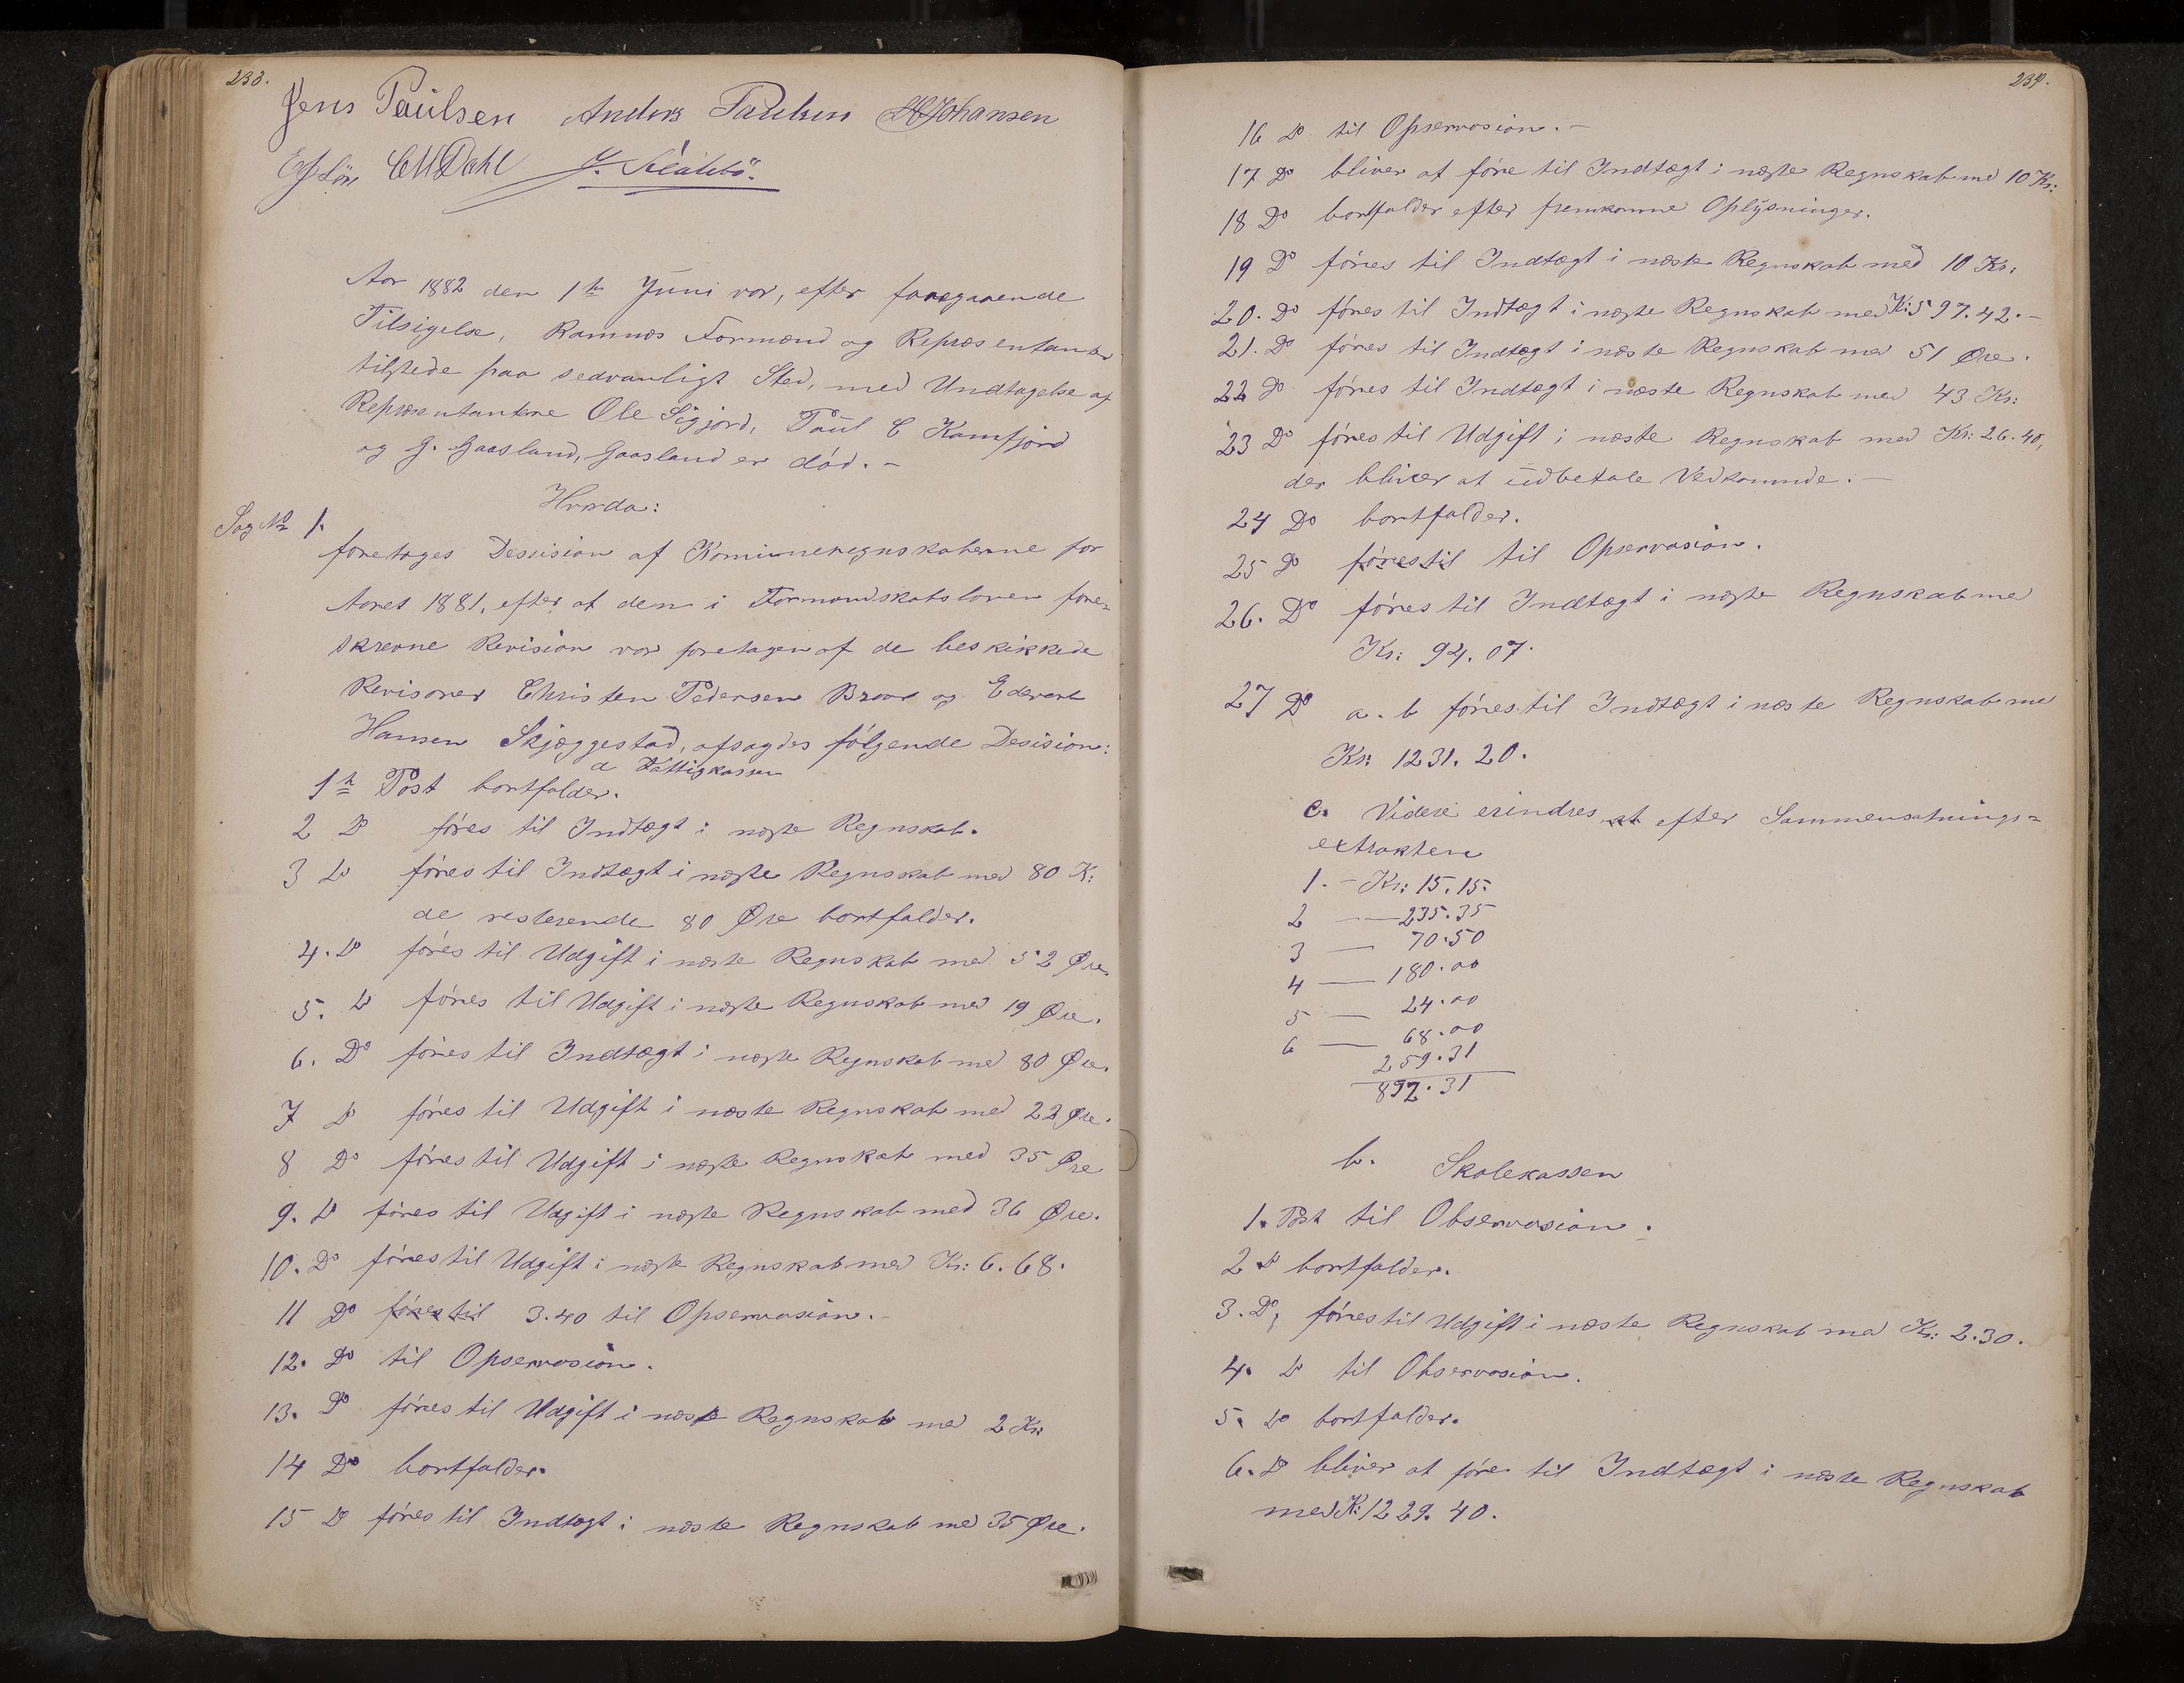 233.
Jens Paulsen Anders Paulsen HJohansen
CMDahl
Aar 1882 den 1ste Juni var, efter foregaaende
Tilsigelse, Ramnæs Formænd og Repræsentanter
tilstede paa sedvanligt Sted, med Undtagelse af
Repræsentantene Ole Sigjord, Paul C Kamfjord
og G. Gaasland, Gaasland er død. -
Hvorda:
Sag No 1.
foretages Dessision af Komuneregnskaberne for
Aaret 1881, efter at den i Formandskabsloven fore=
skrevne Revision var foretagen af de beskikkede
Revisorer Christen Pedersen Braar og Edvart
Hansen Skjæggestad, afsagdes følgende Desision:
a Fattigkassen
1ste Post bortfalder.
2 Do føres til Indtægt i næste Regnskab.
3 Do føres til Indtægt i næste Regnskab med 80 K:
de resterende 80 Øre bortfalder.
4. Do føres til Udgift i næste Regnskab med 52 Øre
5. Do føres til Udgift i næste Regnskab med 19 Øre.
6. Do føres til Indtægt i næste Regnskab med 80 Øre.
7 Do føres til Udgift i næste Regnskab med 22 Øre.
8 Do føres til Udgift i næste Regnskab med 35 Øre
9. Do føres til Udgift i næste Regnskab med 36 Øre.
10. Do føres til Udgift i næste Regnskab med Kr: 6.68.
11 Do føres til 3.40 til Opservasion. -
12. Do til Opservasion.
13. Do føres til Udgift i næste Regnskab med 2 Kr:
14 Do bortfalder.
15 Do føres til Indtægt i næste Regnskab med 35 Øre.
234.
16 Do til Opservasion. -
17 Do bliver at føre til Indtægt i næste Regnskab med 10 Kr:
18 Do bortfalder efter fremkomne Oplysninger.
19 Do føres til Indtægt i næste Regnskab med 10 Kr:
20. Do føres til Indtægt i næste Regnskab med K: 597.42. -
21. Do føres til Indtægt i næste Regnskab med 51 Øre.
22 Do føres til Indtægt i næste Regnskab med 43 Kr:
23 Do føres til Udgift i næste Regnskab med Kr: 26.40,
der bliver at udbetale Vedkommde. -
24 Do bortfalder.
25 Do føres til til Opservasion.
26. Do føres til Indtægt i næste Regnskab med
Kr: 94.07.
27 Do a. b føres til Indtægt i næste Regnskab med
Kr: 1231.20.
c. Videre erindres at efter Sammensatnings=
extrakten
1. - Kr: 15.15.
2 — 235.35
3 — 70.50
4 — 180.00
5 — 24.00
6 — 68.00
259.31
892.31
b. Skolekassen
1. Post til Observasion.
2 Do bortfalder.
3. Do, føres til Udgift i næste Regnskab med Kr: 2.30.
4. Do til Observasion.
5. Do bortfalder.
6. Do bliver at føre til Indtægt i næste Regnskab
med K: 1229.40.